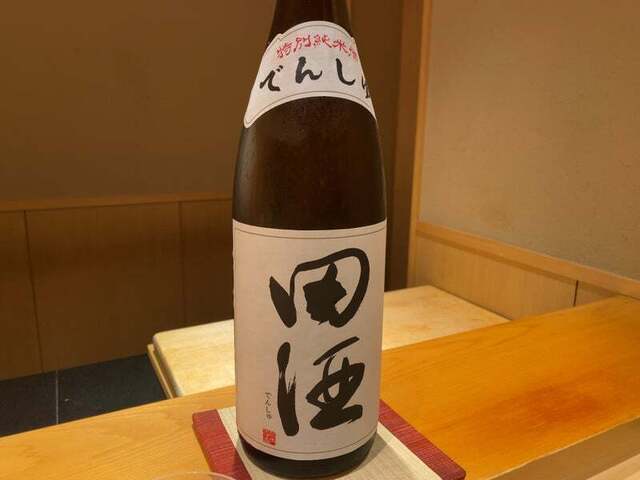 特別純米酒
でんしゅ
田酒
でんしゅ